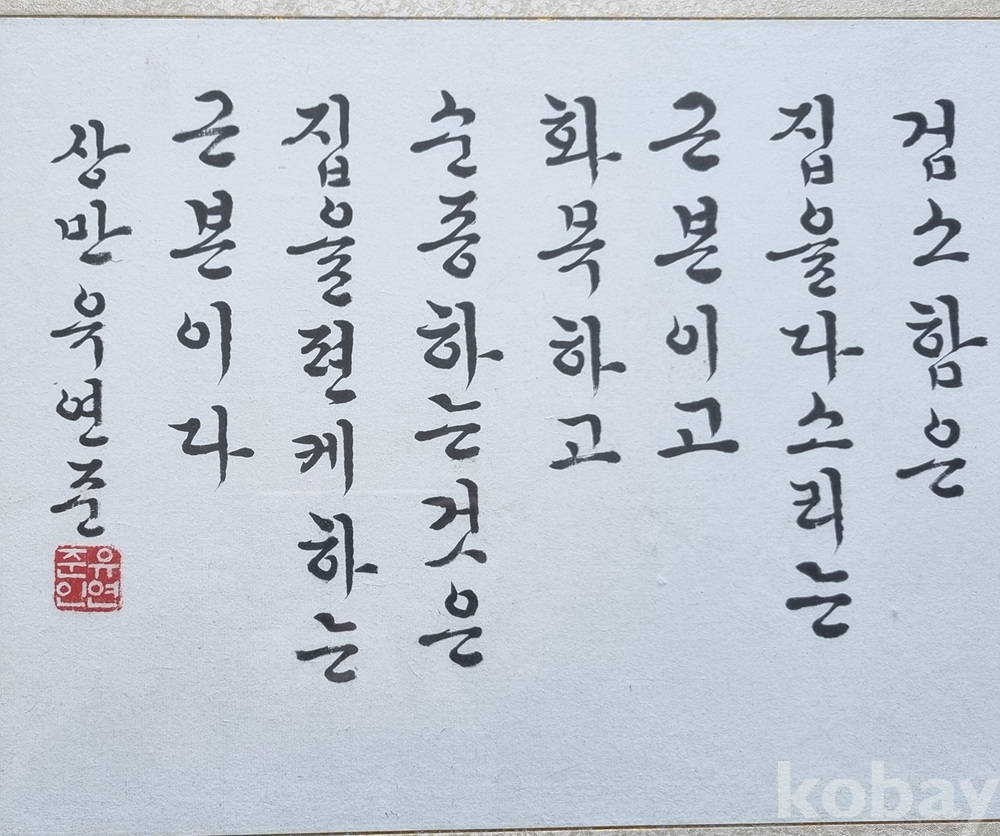 검소함은
집을다스리는
근본이고
화목하고
순종하는것은
집을편케하는
근본이다
상만유연준
유연준인
kobay